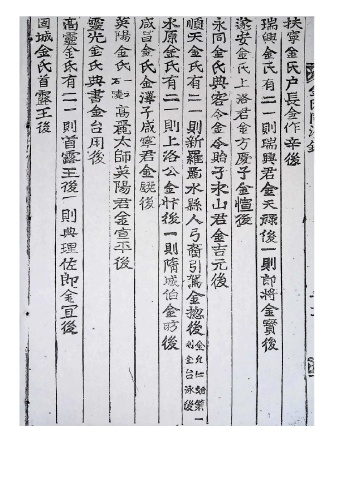 扶寧金氏户長金作辛後
瑞興金氏有二一則瑞興君金天祿後一則郎將金寶後
遂安金氏上洛君金方慶子金愃後
永同金氏典客令金令貽子永山君金吉元後
順天金氏有二一則新羅馬水縣人弓裔引駕金摠後
水原金氏有二一則上洛公金忭後一則隋城伯金昉後
咸昌金氏金澤子咸寧君金鋭後
英陽金氏 高麗太師英陽君金宣平後
靈光金氏典書金台用後
高靈金氏有二一則首露王後一則典理佐郎金宜後
固城金氏首露王後